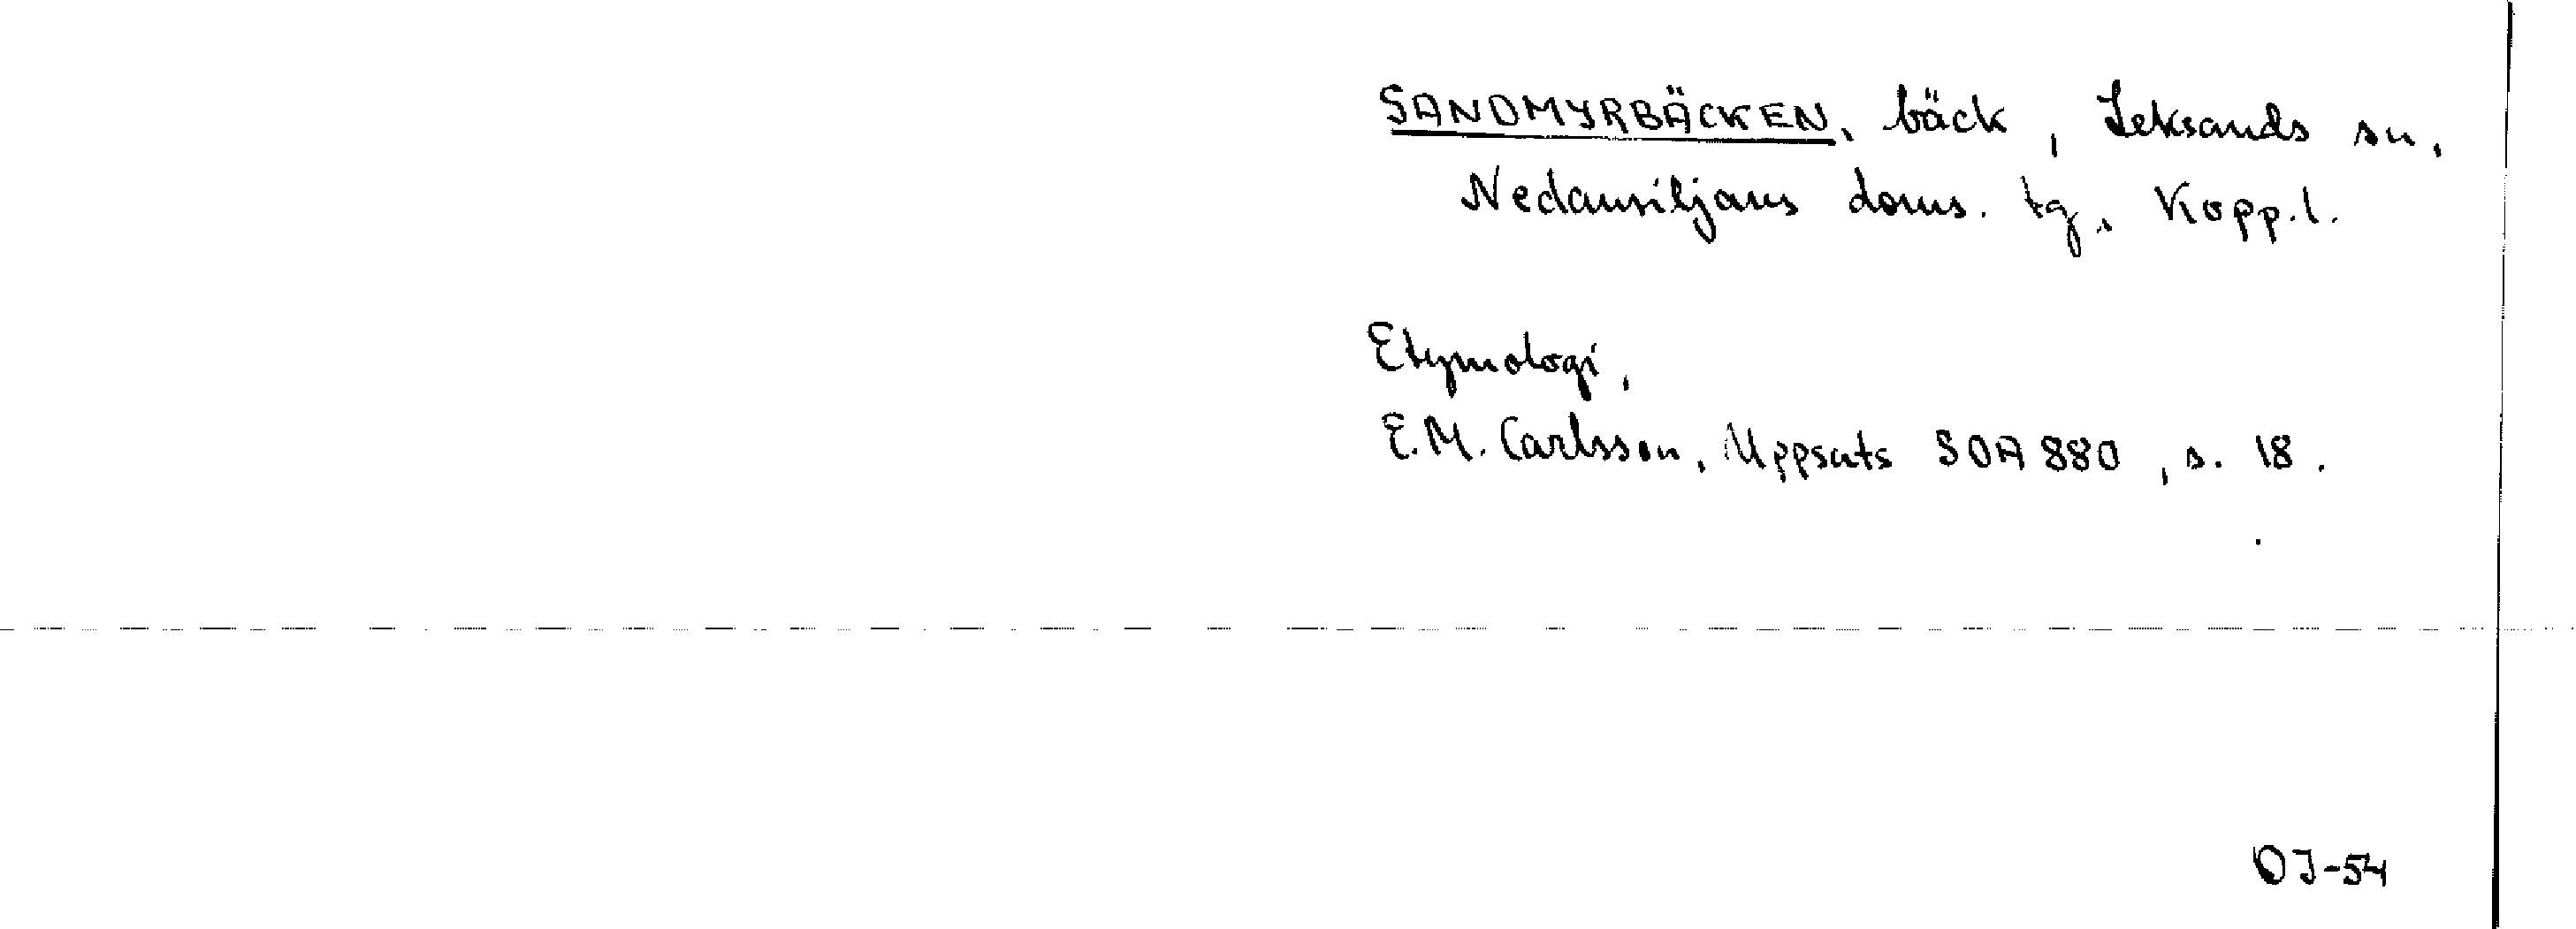 SANDMYRBÄCKEN, bäck, Leksands sn,
Nedansiljans doms. tg, Kopp.l.
Etymologi,
E.M. Carlsson, Uppsats SOA 880, s. 18.
OJ-54